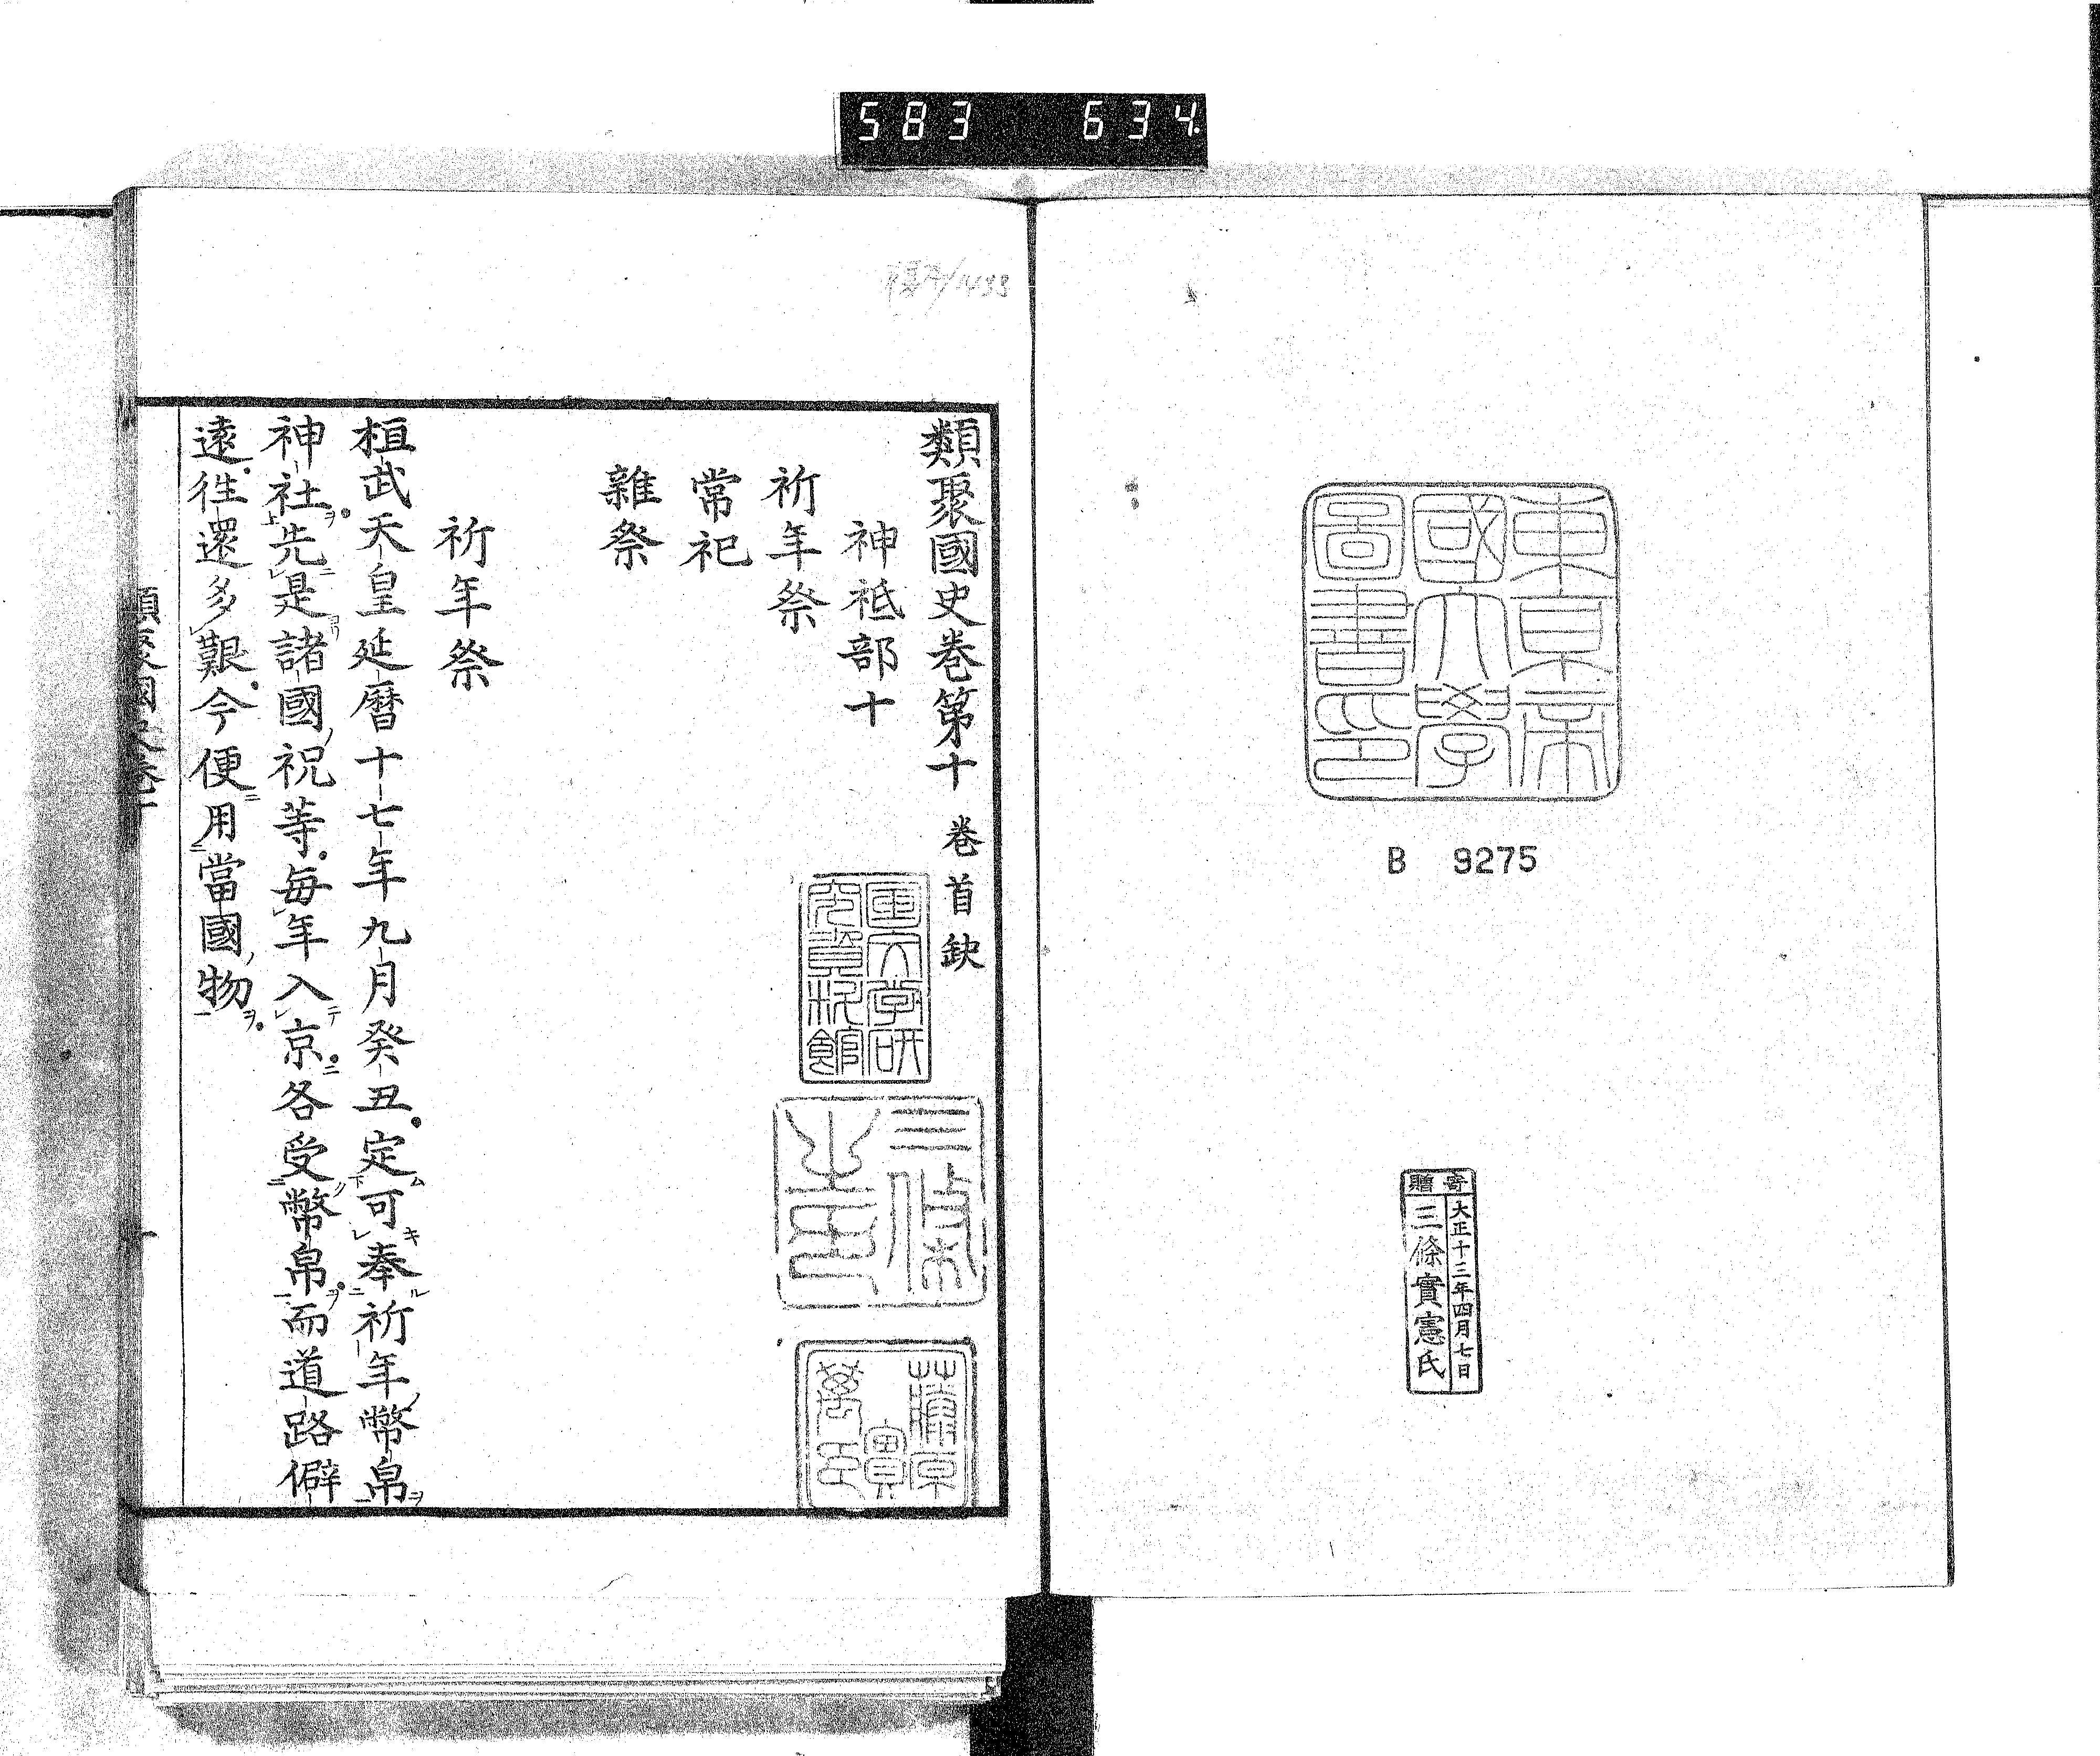 583 634
東京帝
國大學
圖書印
B 9275
寄贈
大正十三年四月七日
三條實憲氏
類聚國史卷第十 卷首缺
神祇部十
祈年祭
常祀
雜祭
祈年祭
桓武天皇延曆十七年九月癸丑定可奉祈年幣帛
神社先是諸國祝等每年入京各受幣帛而道路僻
遠徃還多艱今便用當國物
國文学研
究資料館
三條
之印
類聚國史卷十